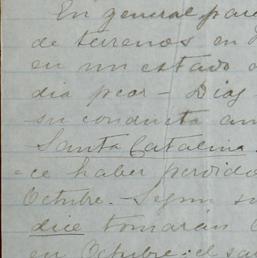 En general par
de terrenos en
en un estado
dia peor - Dias
su conducta an
Santa Catalina.
=ce haber perdido
Octubre. - Segun su
dice tomarán
en Octubre: el sa